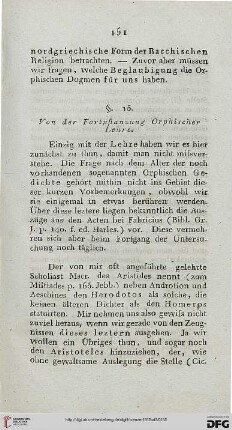 151
nordgriechische Form der Bacchischen
Religion betrachten. — Zuvor aber müssen
wir fragen, welche Beglaubigung die Or-
phischen Dogmen für uns haben.
§. 15.
Von der Fortpflanzung Orphischer
Lehre.
Einzig mit der Lehre haben wir es hier
zunächst zu thun, damit man nicht misver-
stehe. Die Frage nach dem Alter der noch
vorhandenen sogenannten Orphischen Ge-
dichte gehört mithin nicht ins Gebiet die-
ser kurzen Vorbemerkungen, obwohl wir
sie einigemal in etwas berühren werden.
Über diese leztere liegen bekanntlich die Aus-
züge aus den Acten bei Fabricius (Bibl. Gr.
J. p. 140. f. ed. Harles.) vor. Diese vermeh-
ren sich aber beim Fortgang der Untersu-
chung noch täglich.
Der von mir oft angeführte gelehrte
Scholiast Mscr. des Aristides nennt (zum
Miltiades p. 166. Jebb.) neben Androtion und
Aeschines den Herodotos als solche, die
keinen älteren Dichter als den Homeros
statuirten. Mir nehmen uns also gewifs nicht
zuviel heraus, wenn wir gerade von den Zeug-
nissen dieses leztern ausgehen. Ja wir
wollen ein Übriges thun, und sogar noch
den Aristoteles hinzuziehen, der, wie
ohne gewaltsame Auslegung die Stelle (Cic.
UNIVERSITÄTS-
BIBLIOTHEK
HEIDELBERG
Gefördert durch
DFG